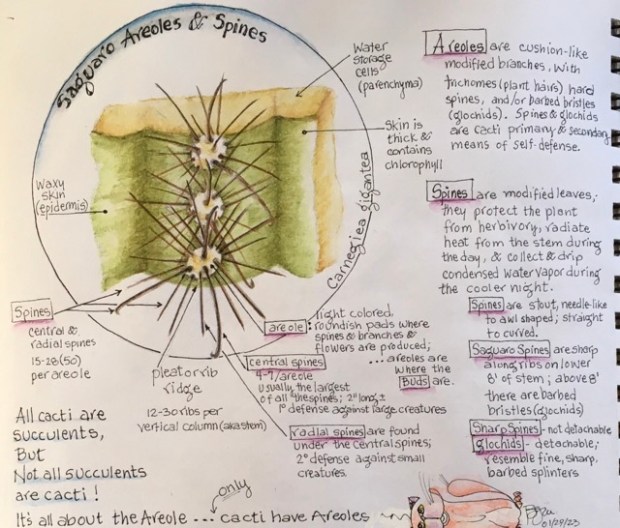 Saguaro Areoles & Spines
Water
storage
cells
(parenchyma)
Skin is
thick &
contains
chlorophyll
Waxy
skin
(epidermis)
Carnegiea gigantea
Areoles are cushion-like
modified branches, with
trichomes (plant hairs) hard
spines, and/or barbed bristles
(glochids). Spines & glochids
are cacti primary & secondary
means of self-defense.
Spines are modified leaves;
they protect the plant
from herbivory, radiate
heat from the stem during
the day, & collect & drip
condensed water vapor during
the cooler night.
Spines are stout, needle-like
to awl shaped; straight
to curved.
Saguaro Spines are sharp
along ribs on lower
8' of stem; above 8'
there are barbed
bristles (glochids)
Sharp Spines - not detachable
glochids - detachable;
resemble fine, sharp,
barbed splinters
Spines
central &
radial spines
15-28 (50)
per areole
pleat or rib
ridge
12-30 ribs per
vertical column (aka stem)
areole: light colored
roundish pads where
spines & branches &
flowers are produced;
...areoles are
where the
Buds are.
central spines
4-7/areole
usually the largest
of all the spines; 2" long ±
1° defense against large creatures
radial spines are found
under the central spines;
2° defense against small
creatures.
All cacti are
succulents,
But
Not all succulents
are cacti!
only
It's all about the Areole ... cacti have Areoles
01/29/23